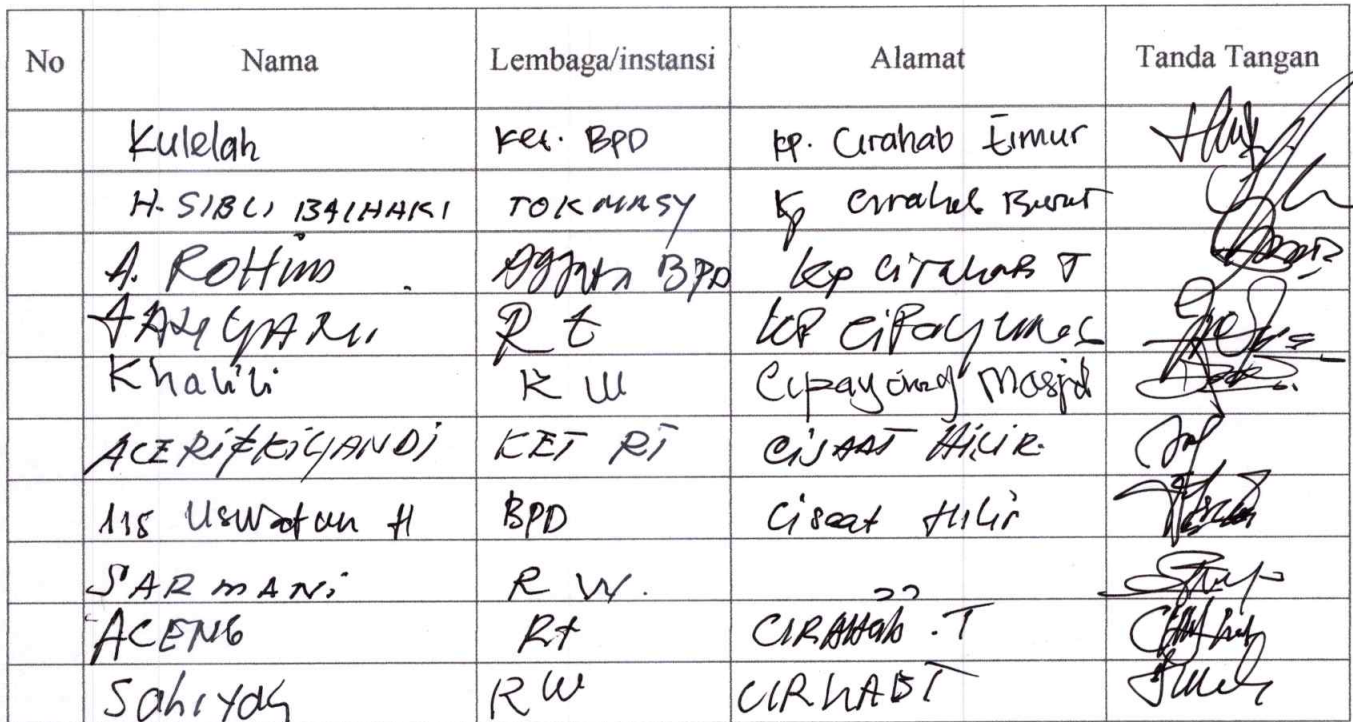 No Nama Lembaga/instansi Alamat Tanda Tangan
Kulelah Ket. BPD kp. Cirahab timur
H. SIBLI BAIHAKI TOKMASY kp Cirahab Barat
A. ROHIM BPD kp cirahab T
R t kp Cipayung
Khalili R W Cipayung Masjid
ACE RiFKiYANDi KET RT CiSAAT HiLiR.
IIS Uswatun H BPD Cisaat Hilir
SARMANi R W. ,,
ACENG Rt CIRAHab .T
Sahiyah RW CIRHAB T